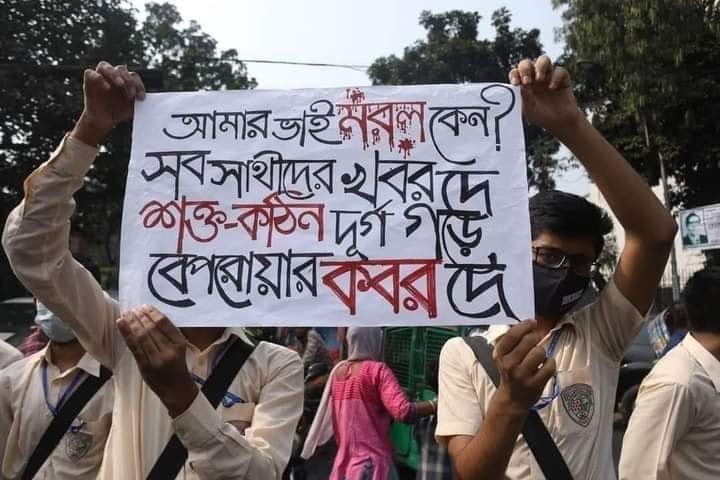 আমার ভাই মরল কেন?
সব সাথীদের খবর দে
শক্ত-কঠিন দূর্গ গড়ে
বেপরোয়ার কবর দে